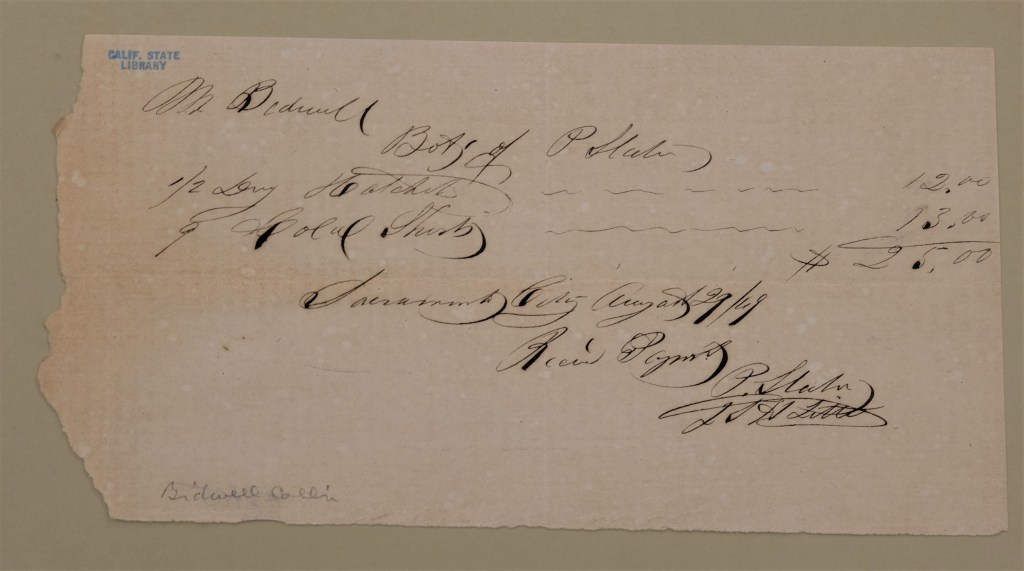 CALIF. STATE
LIBRARY
Mr Bidwell
Bot of P Slater
1/2 Doz Hatchets 12.00
9 Shirts 13.00
$ 25.00
Sacramento City August 29/49
Rec'd Paymt
P. Slater
Bidwell Coll'n